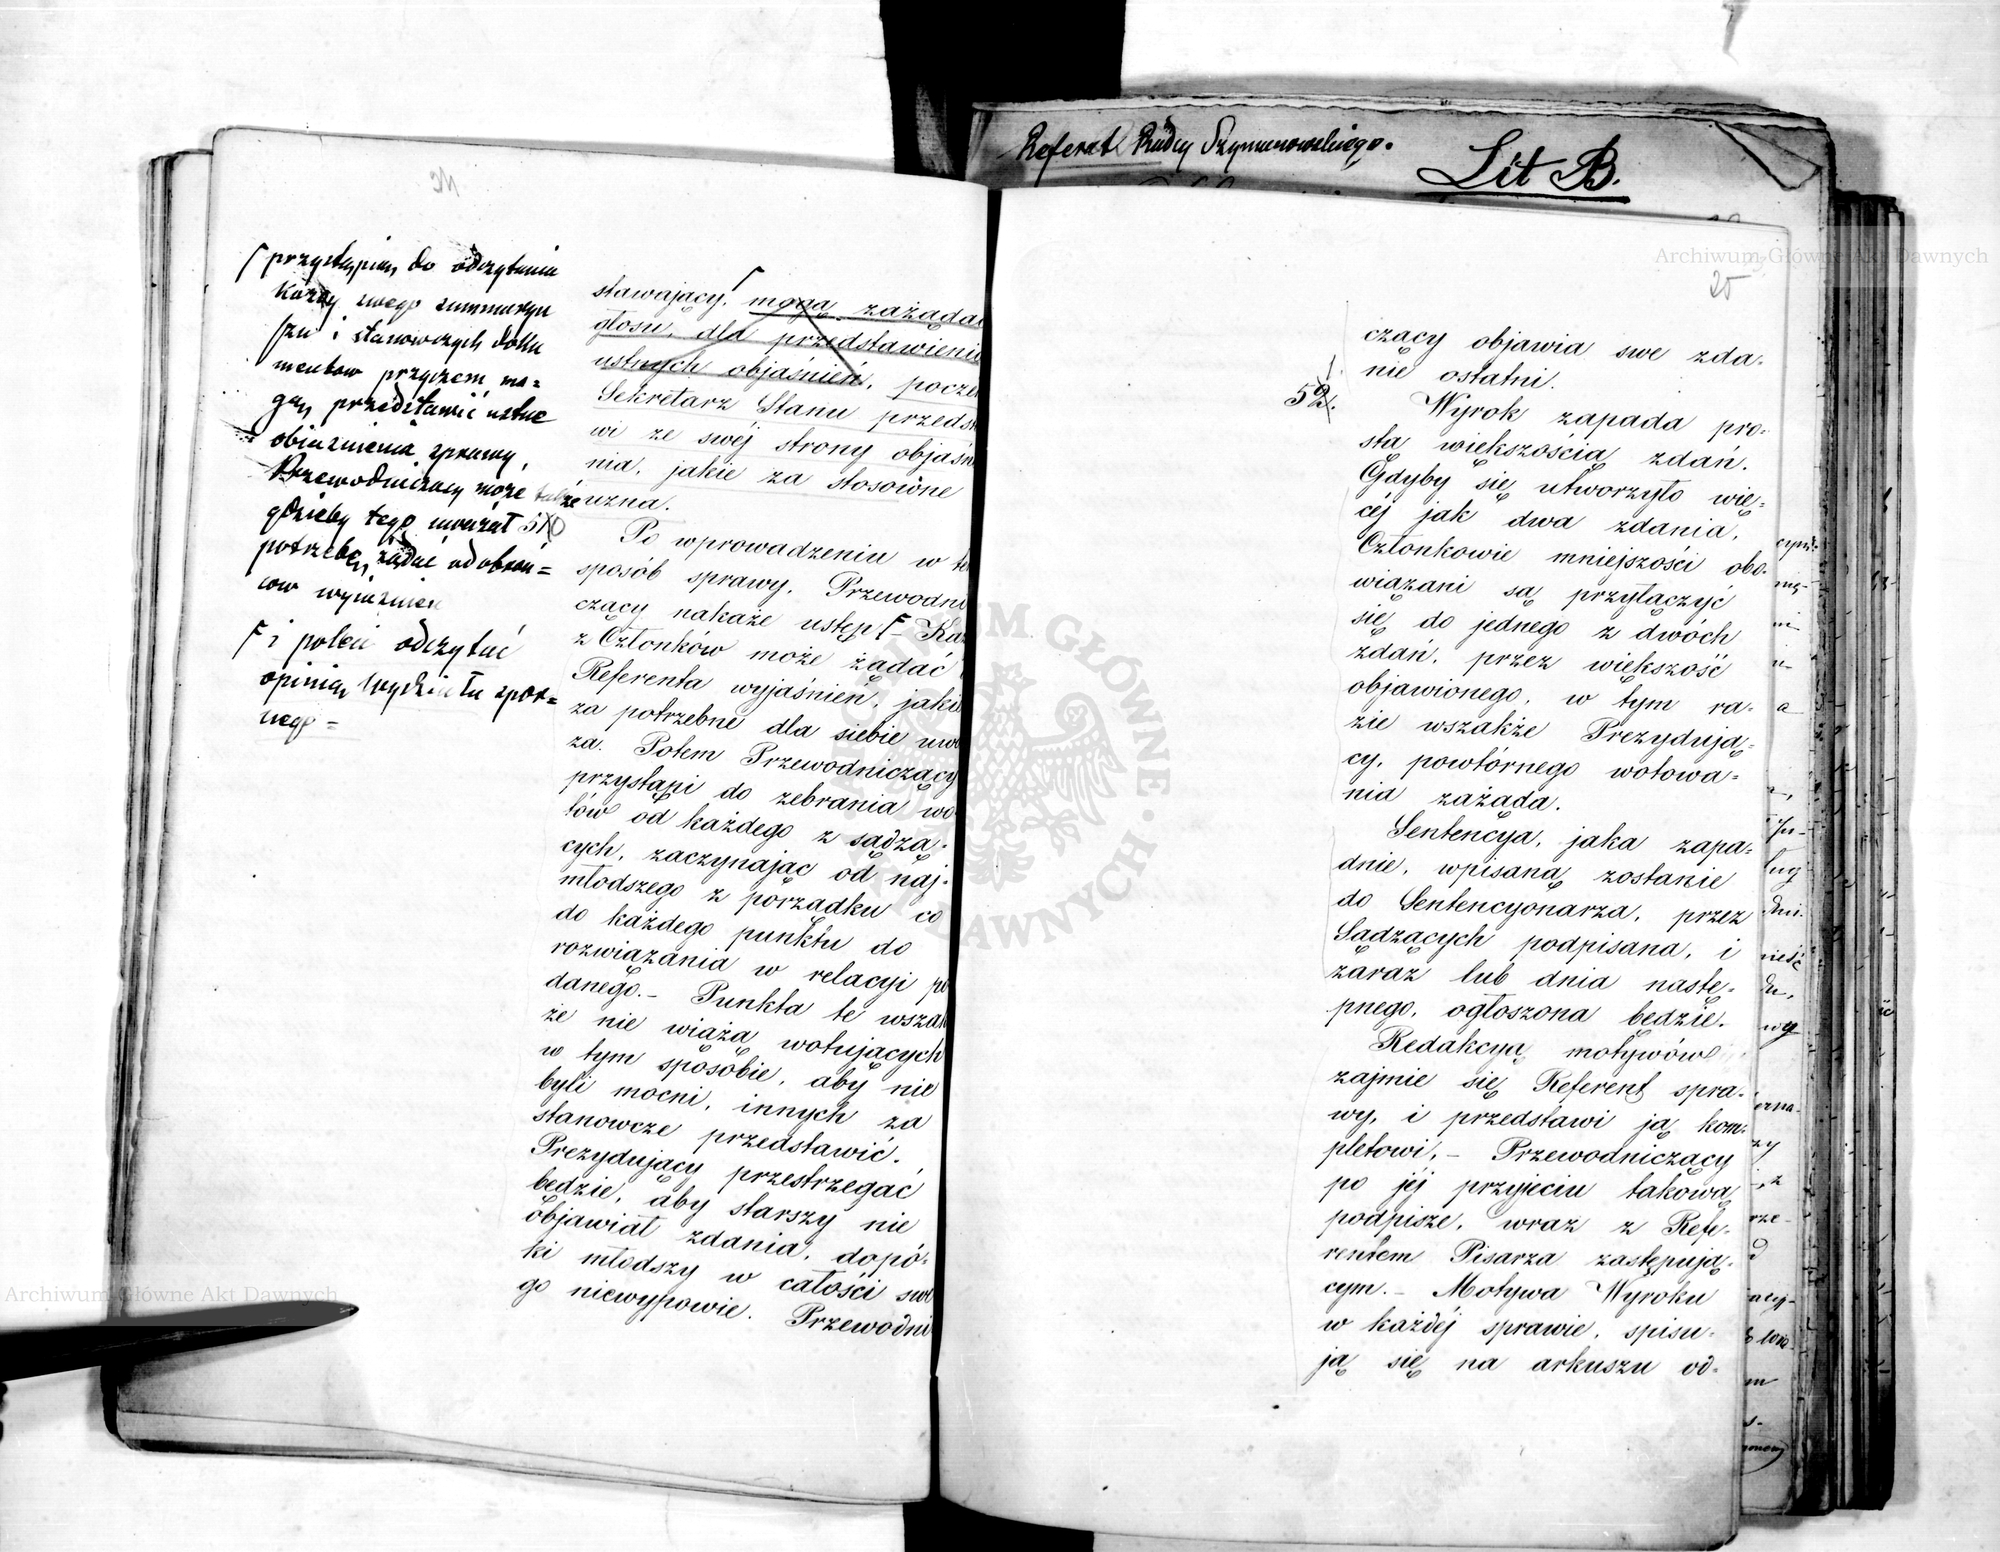 Referat Radcy Szymanowskiego.
Lit B.
przystąpią do odczytania
każdy swego summaryu
szu i stanowczych doku
mentów przyczem mo=
gą przedstawić ustne
objaśnienia sprawy,
Przewodniczący może także
gdzieby tego uważał
potrzebę, żądać od obroń=
ców wyjaśnień
i poleci odczytać
opinią Wydziału spor=
nego =
stawający, mogą zażądać
głosu, dla przedstawienia
ustnych objaśnień, poczem
Sekretarz Stanu przedsta
wi ze swéj strony objaśn
nia, jakie za stosowne
uzna.
51
Po wprowadzeniu w ten
sposób sprawy, Przewodni
czący nakaże ustęp Każ
z Członków może żądać
Referenta wyjaśnień, jakie
za potrzebne dla siebie uwa
za. Potem Przewodniczący
przystąpi do zebrania wo
tów od każdego z sądzą-
cych, zaczynając od naj-
młodszego z porządku co
do każdego punktu do
rozwiązania w relacyi po
danego. – Punkta te wszak
że nie wiążą wotujących
w tym sposobie, aby nie
byli mocni, innych za
stanowcze przedstawić.
Prezydujący przestrzegać
będzie, aby starszy nie
objawiał zdania, dopó-
ki młodszy w całości swe
go niewypowie. Przewodni
25
czący objawia swe zda-
nie ostatni.
52.
Wyrok zapada pro-
stą większością zdań.
Gdyby się utworzyło wię-
céj jak dwa zdania,
Członkowie mniejszości obo-
wiązani są przyłączyć
się do jednego z dwóch
zdań, przez większość
objawionego, w tym ra-
zie wszakże Prezydują-
cy, powtórnego wotowa-
nia zażąda.
Sentencya, jaka zapa-
dnie, wpisaną zostanie
do Sentencyonarza, przez
Sądzących podpisana, i
zaraz lub dnia nastę-
pnego, ogłoszona będzie.
Redakcyą motywów
zajmie się Referent spra-
wy, i przedstawi ją kom-
pletowi, – Przewodniczący
po jéj przyjęciu takową
podpisze, wraz z Refe-
rentem Pisarza zastępują-
cym. – Motywa Wyroku
w każdéj sprawie, spisu-
ją się na arkuszu od-
Archiwum Główne Akt Dawnych
Archiwum Główne Akt Dawnych